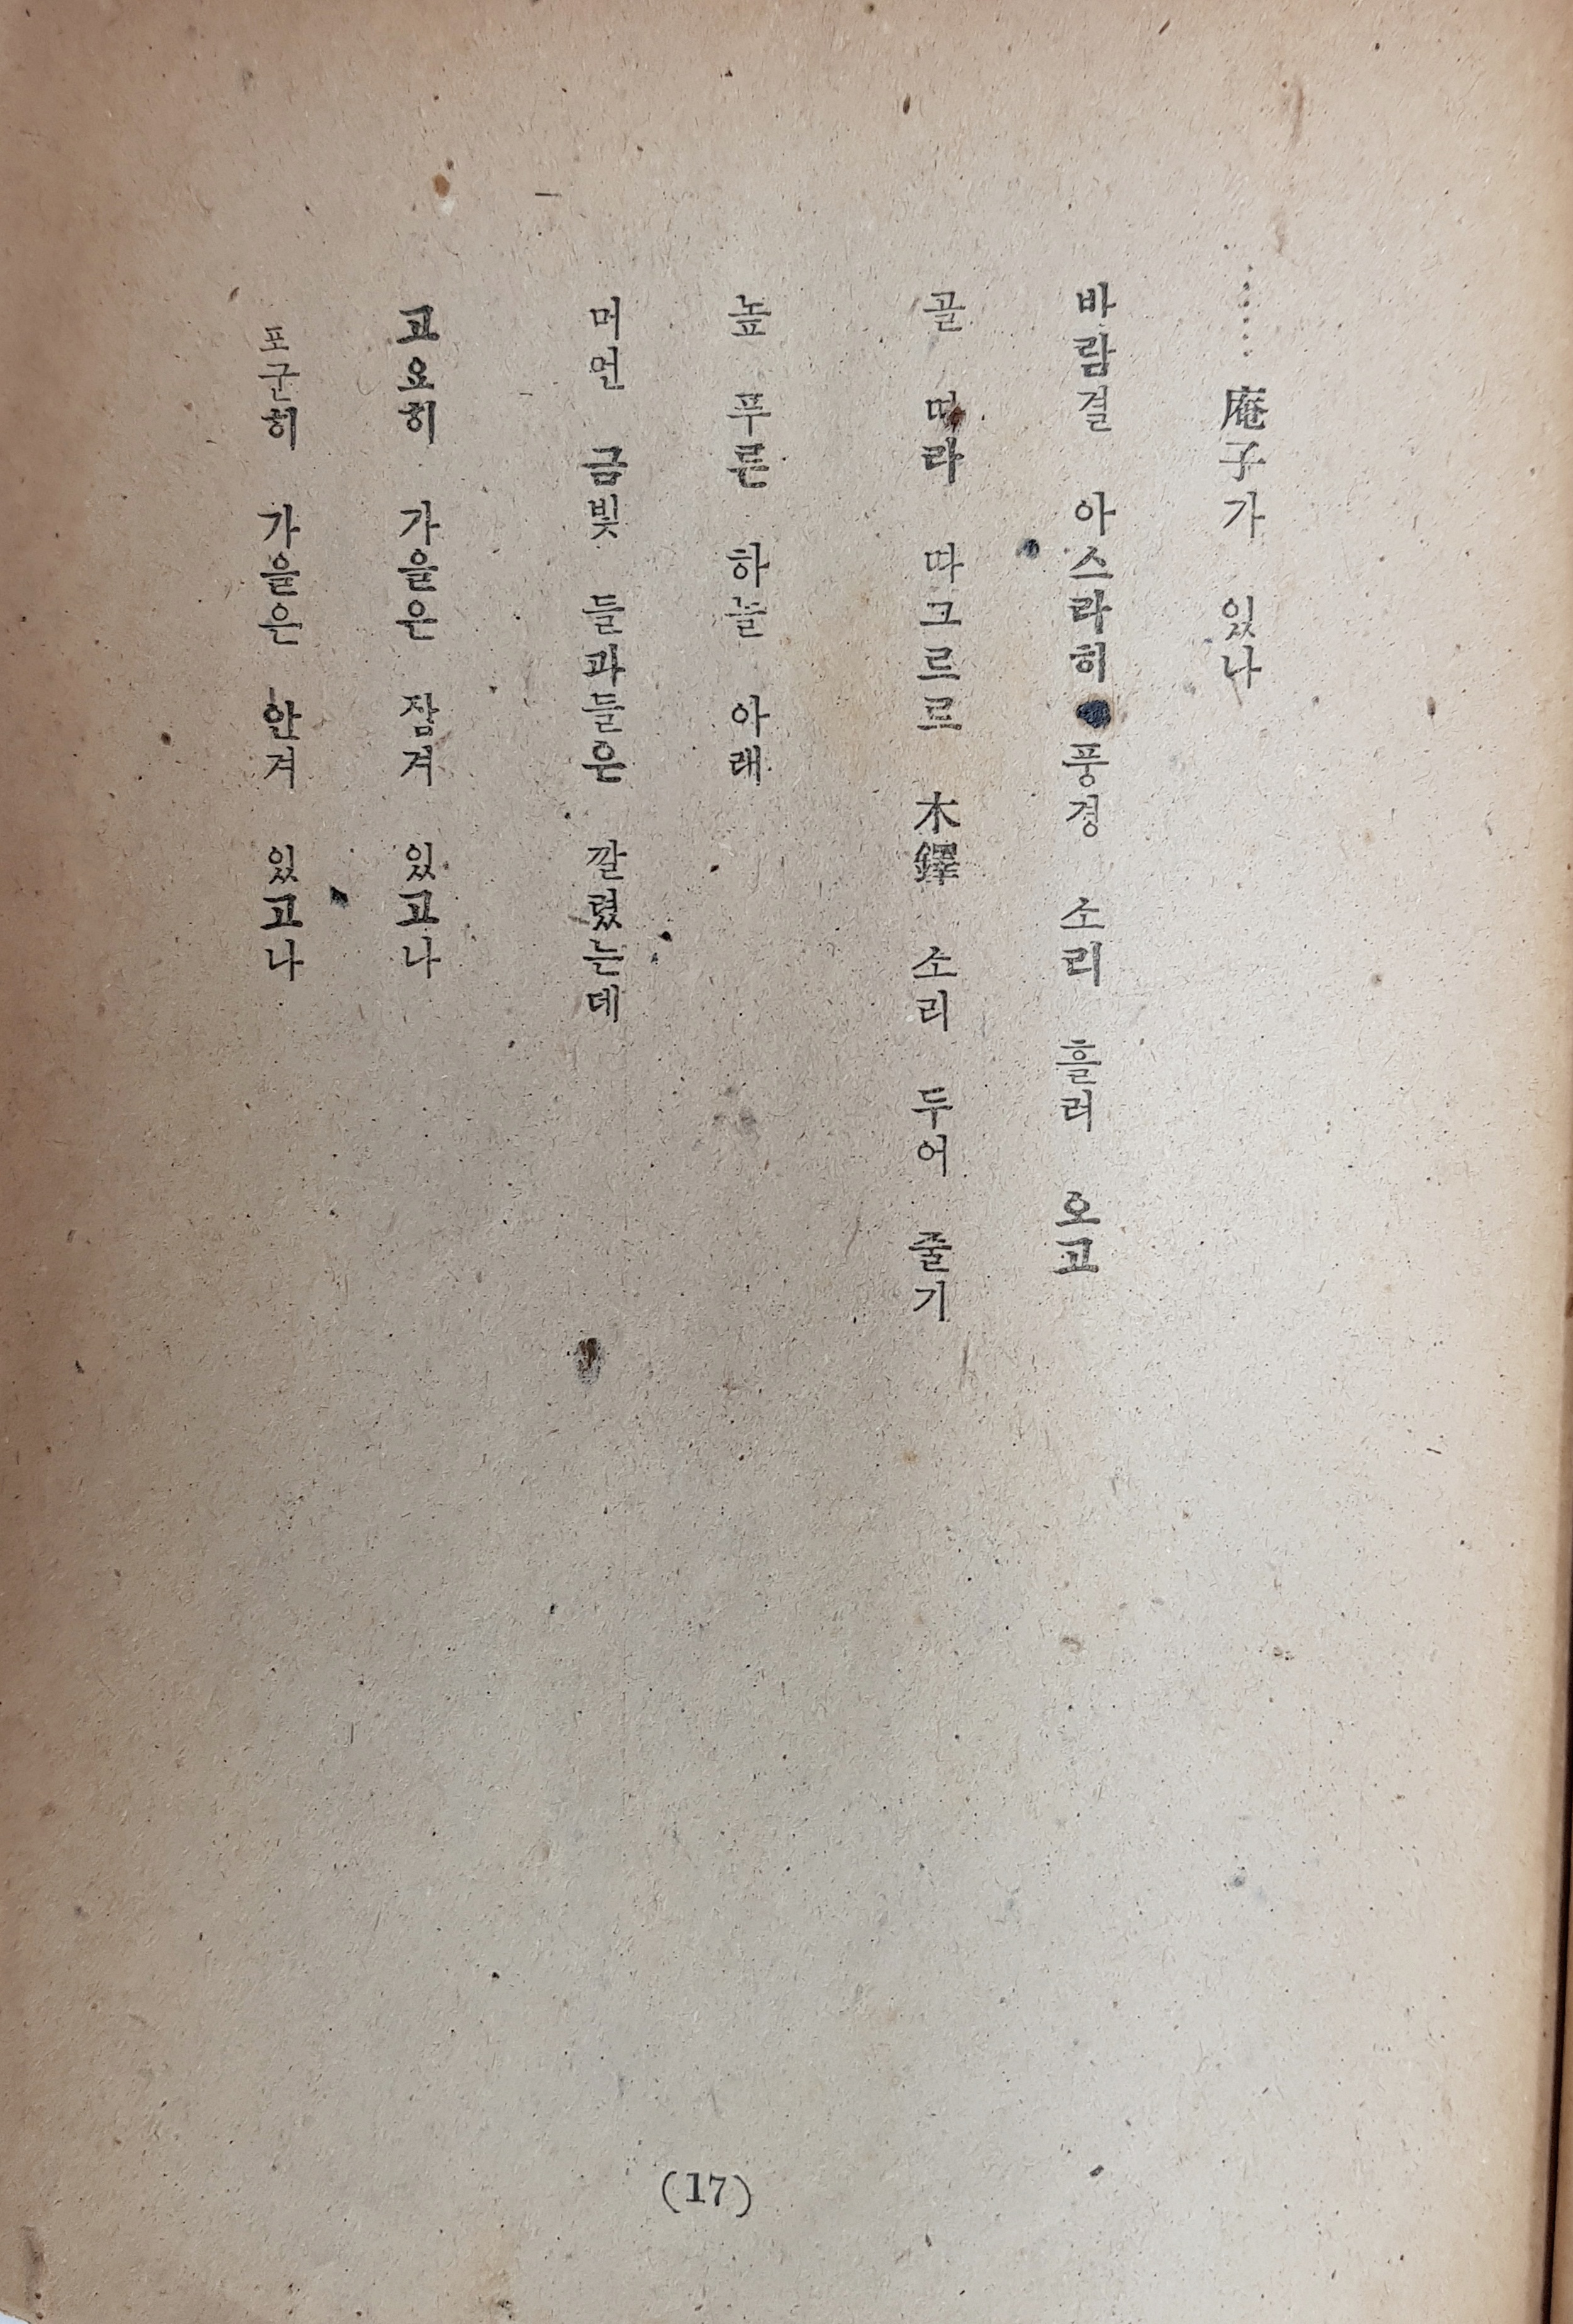 …… 庵子가 있나
바람결 아스라히 풍경 소리 흘러 오고
골 따라 따크르르 木鐸 소리 두어 줄기
높 푸른 하늘 아래
머언 금빛 들과들은 깔렸는데
고요히 가을은 잠겨 있고나
포군히 가을은 안겨 있고나
(17)